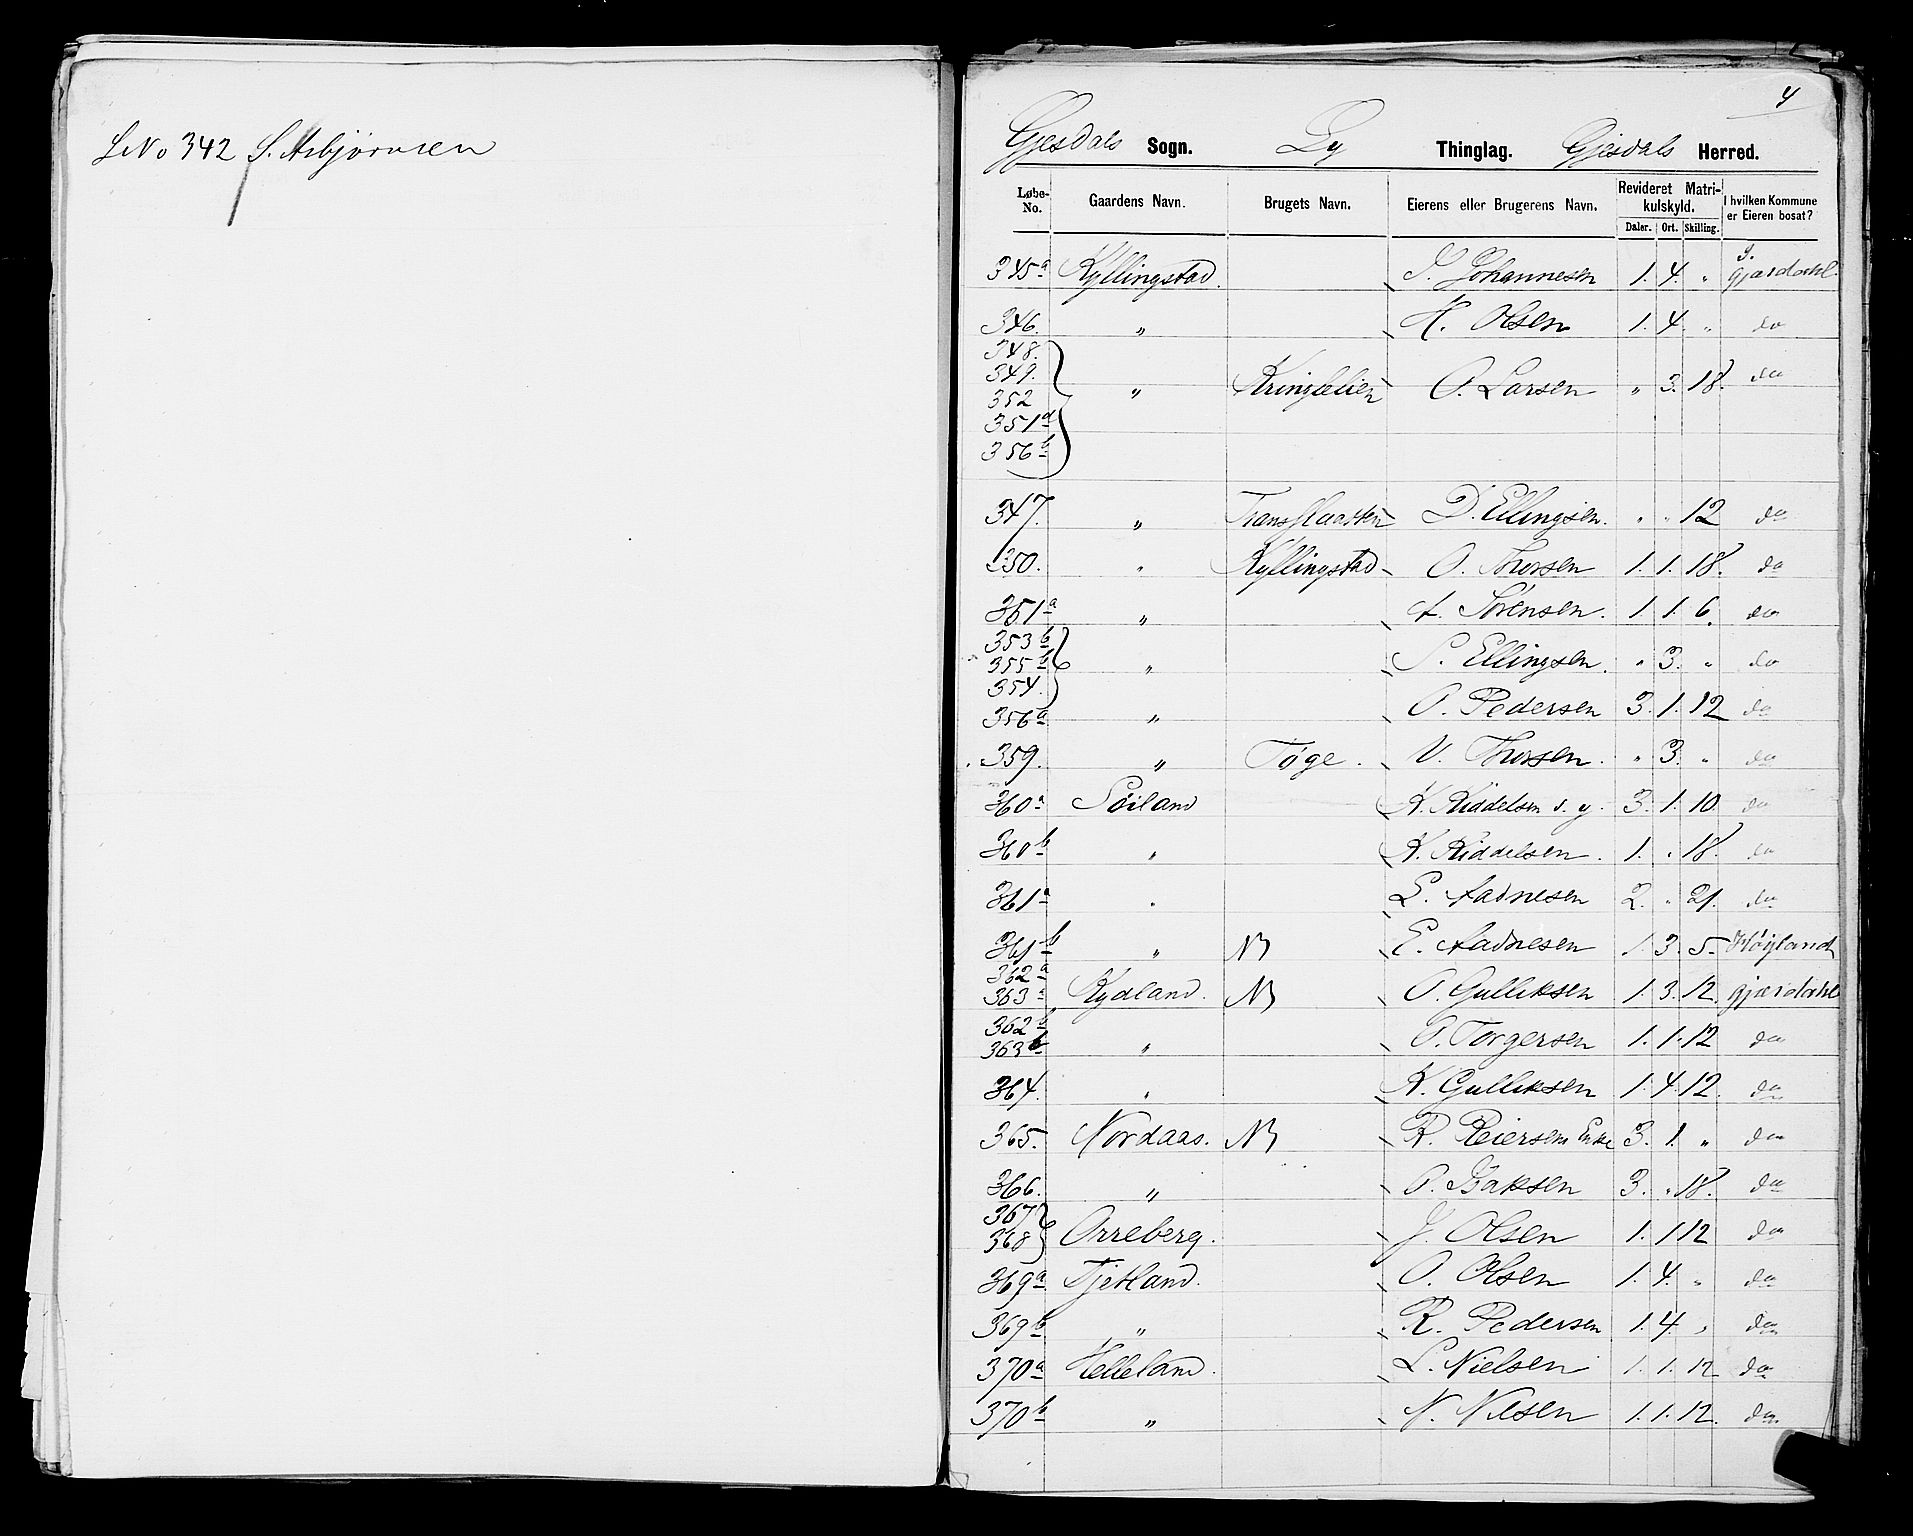 L No 342 S. Asbjørnsen
4
Gjesdals Sogn. Ly Thinglag. Gjesdals Herred.
Løbe-No. Gaardens Navn. Brugets Navn. Eierens eller Brugerens Navn. Revideret Matrikulskyld. Daler. Ort. Skilling. I hvilken Kommune er Eieren bosat?
345a Kyllingstad. J. Johannesen 1. 4. " Gjæsdahl.
346. " H. Olsen 1. 4. " do
348.
349.
352 " Kringlelien O. Larsen " 3. 18. do
351d
356b
347. " D. Ellingsen. " " 12 do
350. " Kyllingstad O. Thorsen 1. 1. 18. do
351a " A. Sørensen. 1. 1. 6. do
353b
355b " S. Ellingsen. " 3. " do
354.
356a " O. Pedersen 3. 1. 12 do
359. " Tøge. V. Thorsen. " 3. " do
360a Søiland K. Kiddelsen d. y. 3. 1. 10 do
360b " K. Kiddelsen. 1. " 18. do
361a " L. Aadnesen 2. " 21. do
361b " NB E. Aadnesen 1. 3. 5. Høyland
362a
363a Kydland. NB O. Gulliksen 1. 3. 12. Gjæsdahl
362b
363b " O. Torgersen 1. 1. 12 do
364. " K. Gulliksen 1. 4. 12. do
365. Nordaas. NB R. Reiersens Enke 3. 1. " do
366. " O. Isaksen 3. " 18. do
367
368 Orreberg. J. Olsen 1. 1 12 do
369a Tjetland. O. Olsen 1. 4. " do
369b " R. Pedersen 1. 4. " do
370a Helleland. L. Nielsen 1. 1. 12 do
370b " N. Nilsen 1. 1. 12. do